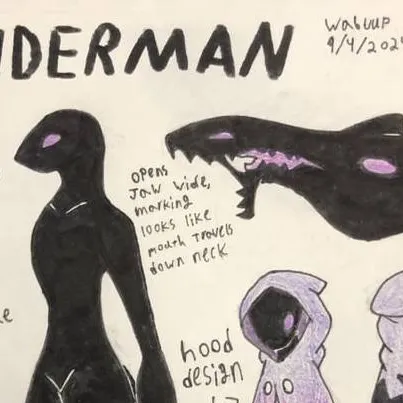 IDERMAN
wabuup
9/4/202
opens
Jaw wide,
marking
looks like
mouth travels
down neck
hood
design